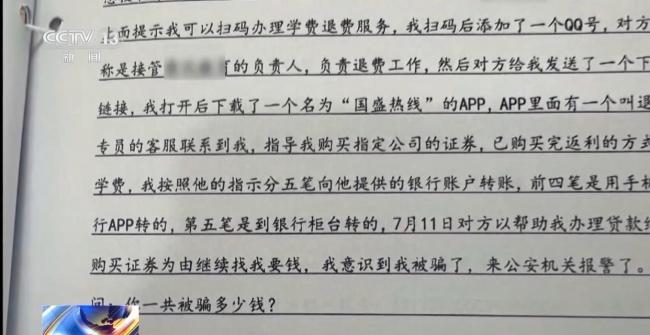 CCTV 13
新闻
上面提示我可以扫码办理学费退费服务，我扫码后添加了一个QQ号，对方
称是接管 的负责人，负责退费工作，然后对方给我发送了一个下
链接，我打开后下载了一个名为“国盛热线”的APP，APP里面有一个叫退
专员的客服联系到我，指导我购买指定公司的证券，已购买完返利的方式
学费，我按照他的指示分五笔向他提供的银行账户转账，前四笔是用手机
行APP转的，第五笔是到银行柜台转的，7月11日对方以帮助我办理贷款
购买证券为由继续找我要钱，我意识到我被骗了，来公安机关报警了。
问：你一共被骗多少钱？